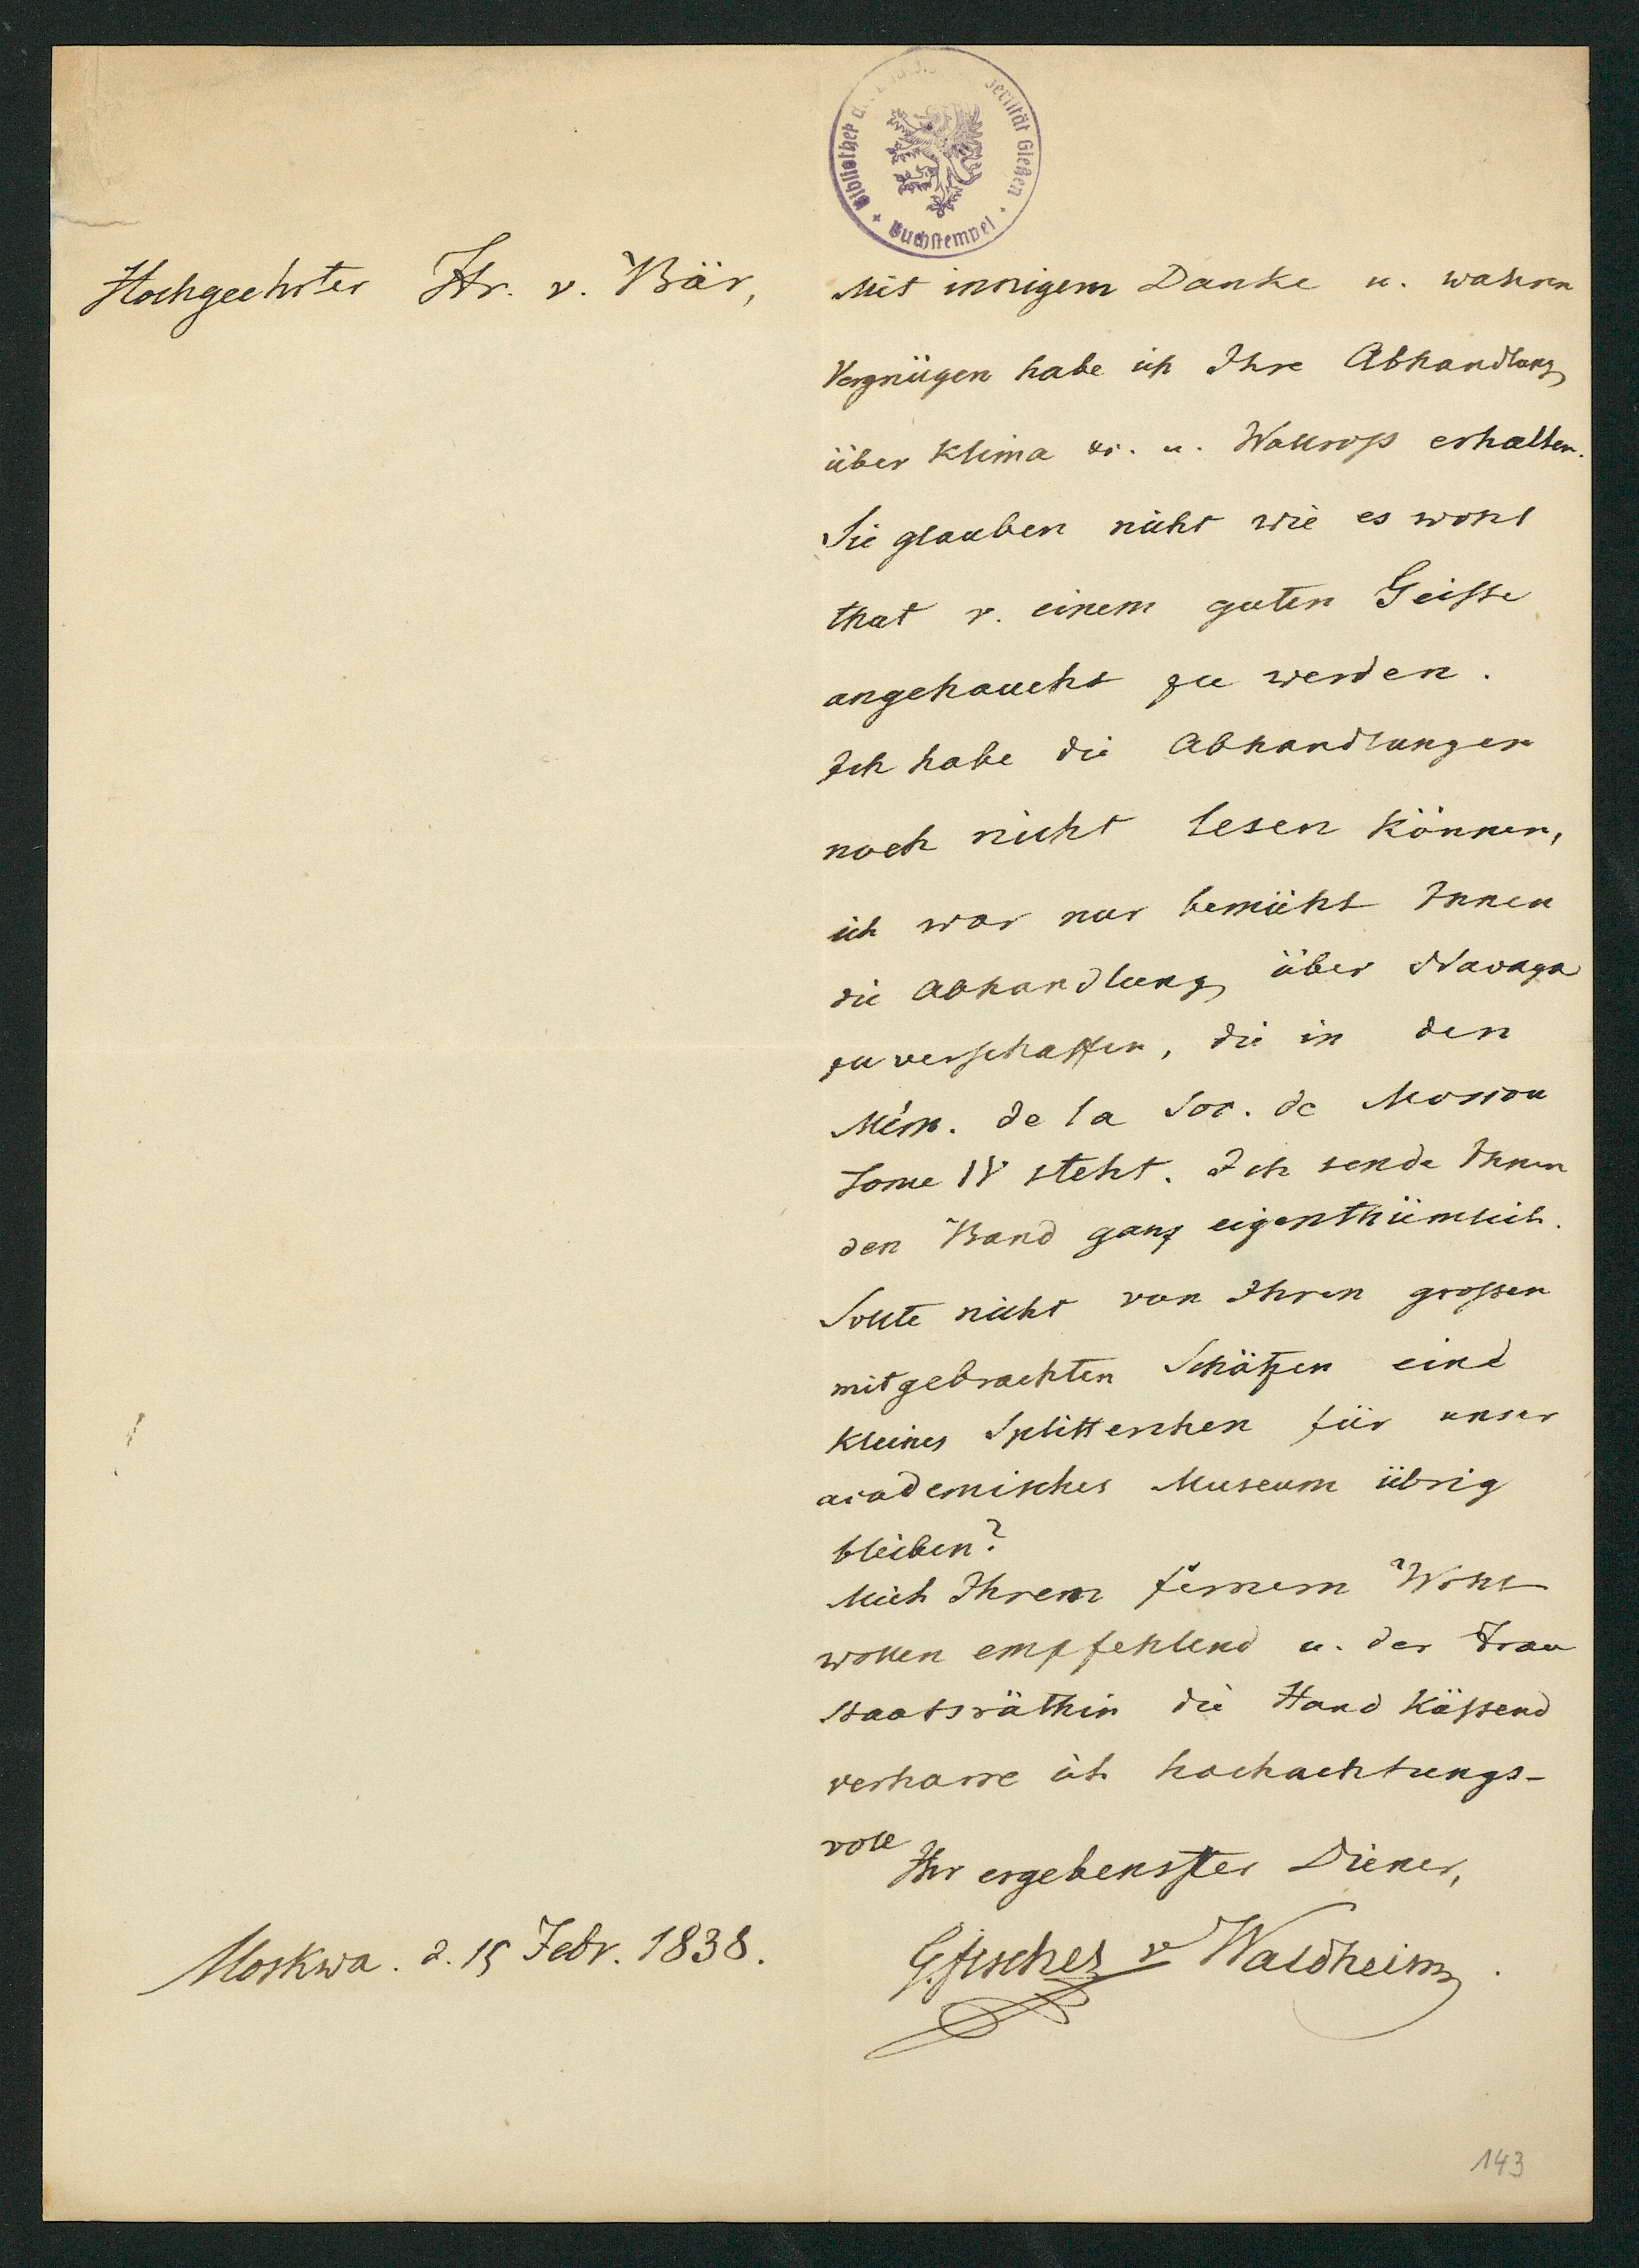 Bibliothek d. Universität Gießen
Buchstempel
Hochgeehrter Hr. v. Bär,
Mit innigem Danke u. wahren
Vergnügen habe ich Ihre Abhandlung
über Klima &c. u. Wallross erhalten.
Sie glauben nicht wie es wohl
that v. einem guten Geiste
angehaucht zu werden.
Ich habe die Abhandlungen
noch nicht lesen können,
ich war nur bemüht Ihnen
die Abhandlung über Navaga
zu verschaffen, die in den
Mém. de la Soc. de Moscou
Tome IV steht. Ich sende Ihnen
den Band ganz eigenthümlich.
Sollte nicht von Ihren grossen
mitgebrachten Schätzen eine
kleines Splitterchen für unser
academisches Museum übrig
bleiben?
Mich Ihrem fernern Wohl
wollen empfehlend u. der Frau
Staatsräthin die Hand küssend
verharre ich hochachtungs-
voll
Ihr ergebenster Diener,
G. Fischer v Waldheim.
Moskwa. d. 15 Febr. 1838.
143